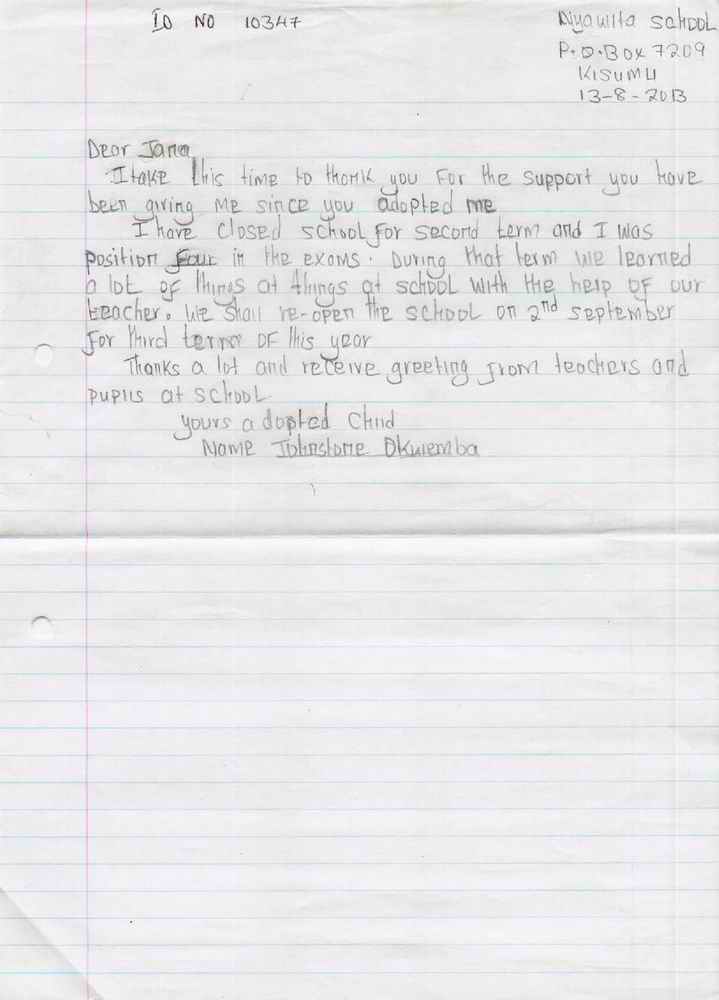 ID NO 10347
Nyawita SCHOOL
P.O.BOX 7209
KISUMU
13-8-2013
Dear Jana
I take this time to thank you for the support you have
been giving me since you adopted me
I have closed school for second term and I was
position four in the exams. During that term we learned
a lot of things at things at school with the help of our
teacher. We shall re-open the school on 2nd september
for third term of this year
Thanks a lot and receive greeting from teachers and
pupils at school
yours adopted child
Name Johnstone Okwemba